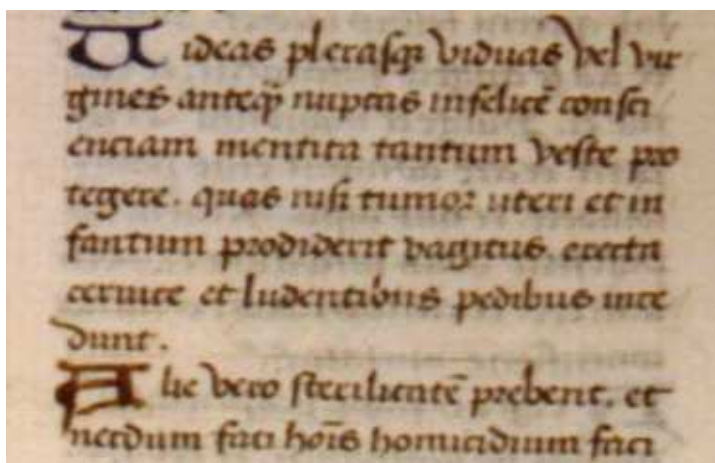 Uideas plerasq; viduas vel vir
gines anteq̄ nuptas infelicē consci
enciam mentita tantum veste pro
tegere. quas nisi tumor uteri et in
fantium prodiderit vagitus. erecta
ceruice et ludentibus pedibus ince
dunt.
Alie vero sterilitatē prebent. et
necdum sati hoīs homicidium faci